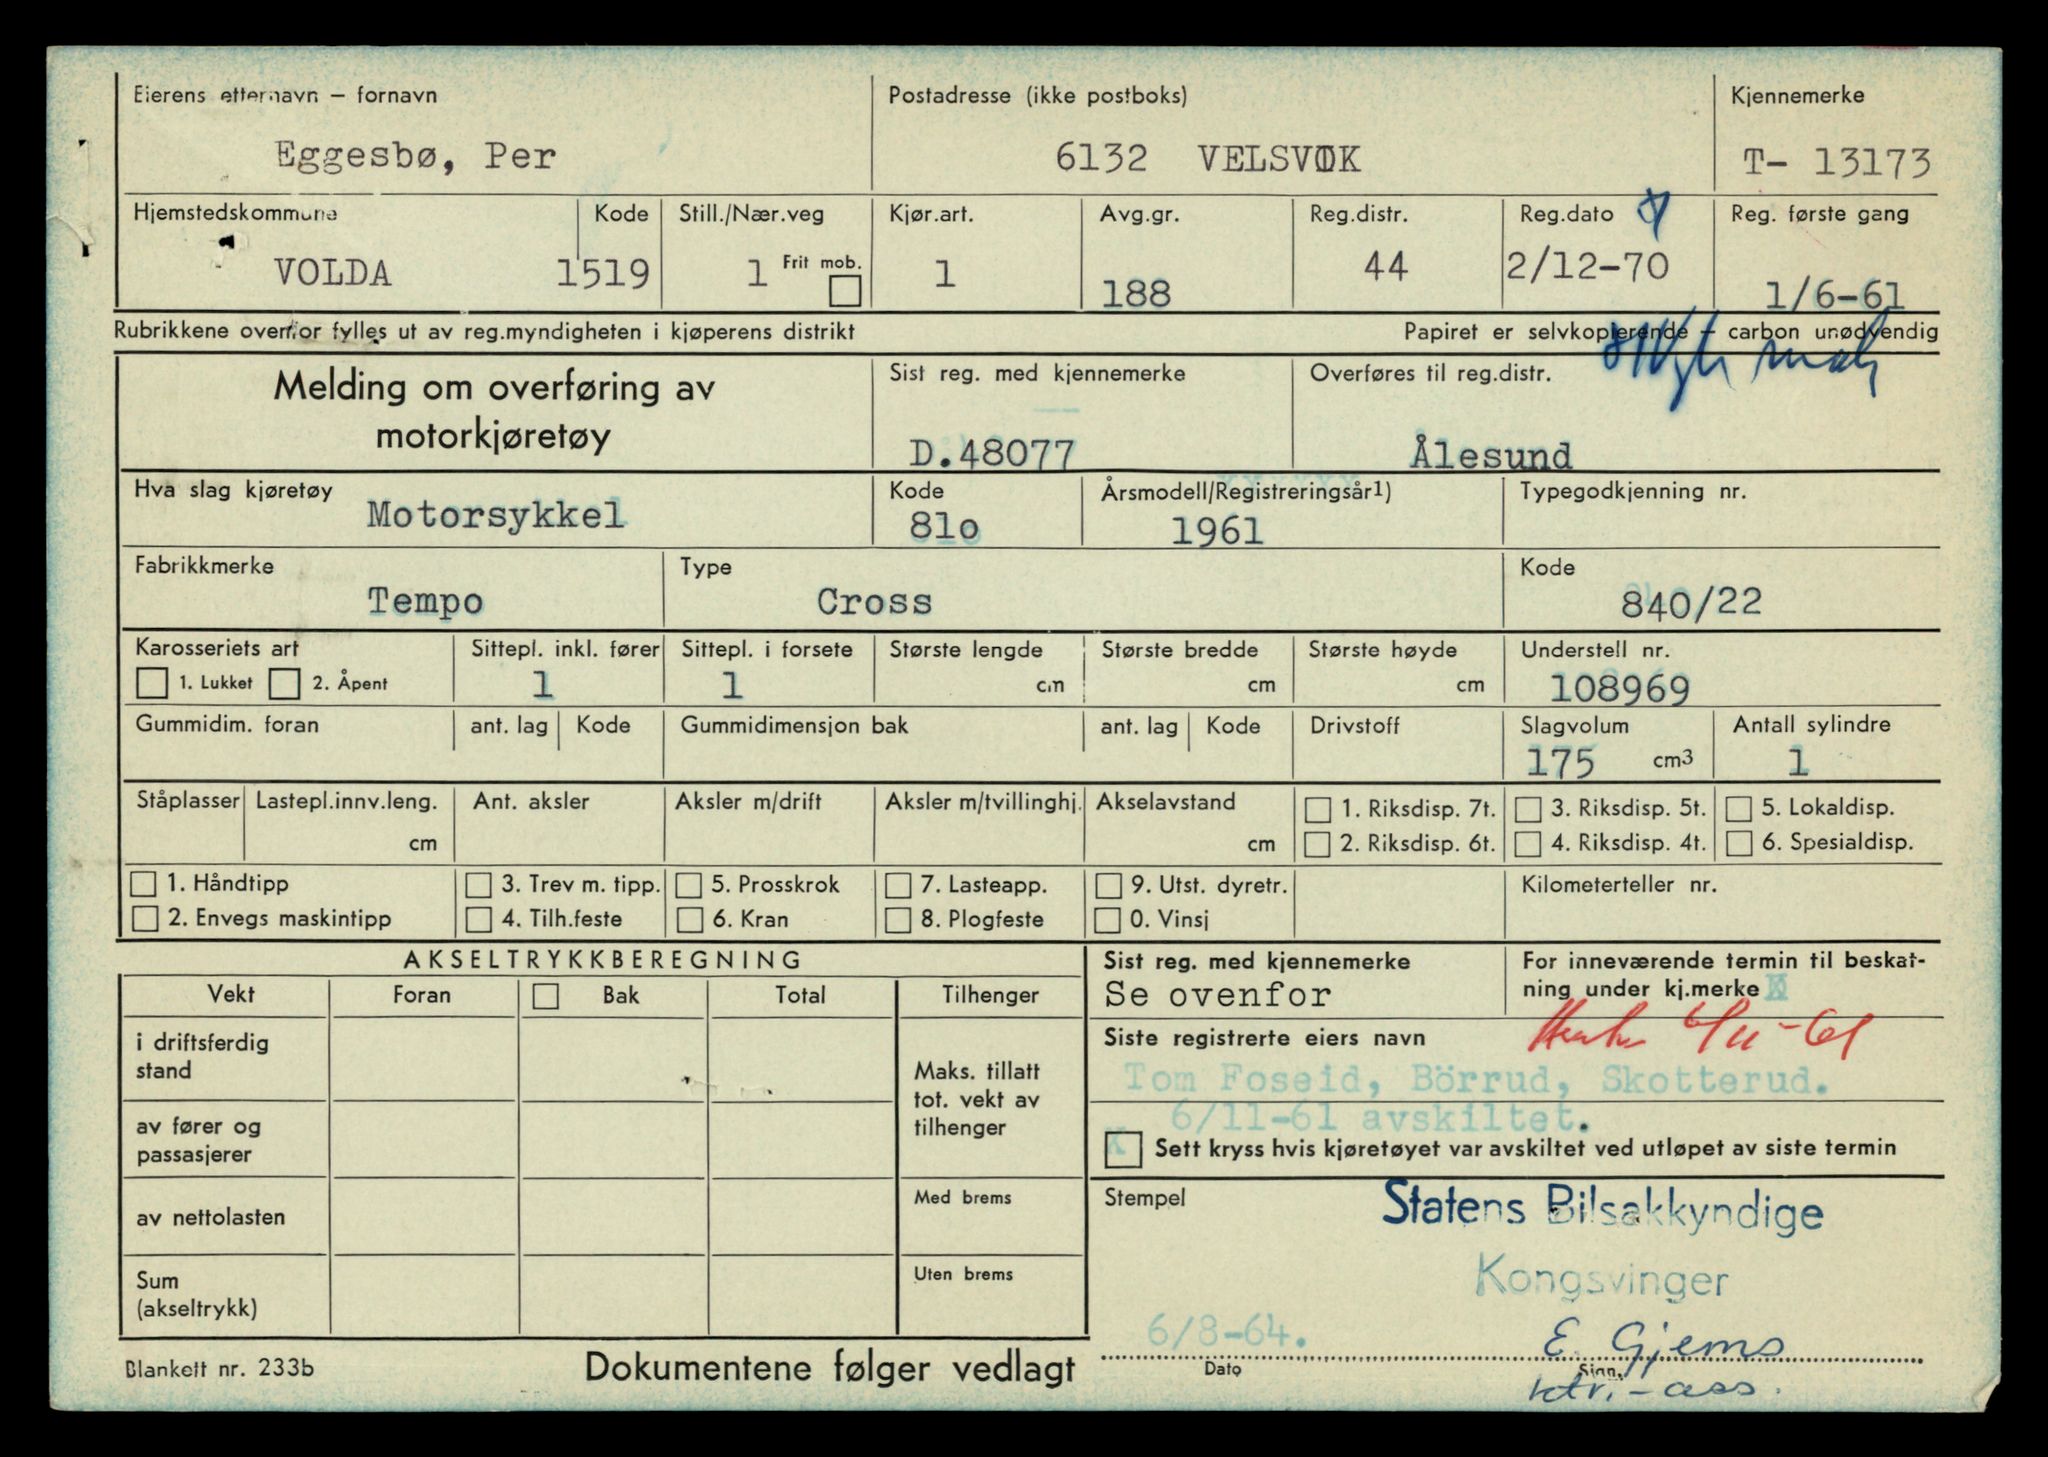 Eierens etternavn – fornavn
Postadresse (ikke postboks)
Kjennemerke
Eggesbø, Per
6132 VELSVIK
T- 13173
Hjemstedskommune
Kode
Still./Nær.veg
Kjør.art.
Avg.gr.
Reg.distr.
Reg.dato
Reg. første gang
VOLDA
1519
1
Frit mob.
1
188
44
2/12-70
1/6-61
Rubrikkene overfor fylles ut av reg.myndigheten i kjøperens distrikt
Papiret er selvkopierende – carbon unødvendig
Melding om overføring av
motorkjøretøy
Sist reg. med kjennemerke
Overføres til reg.distr.
D.48077
Ålesund
Hva slag kjøretøy
Kode
Årsmodell/Registreringsår1)
Typegodkjenning nr.
Motorsykkel
81o
1961
Fabrikkmerke
Type
Kode
Tempo
Cross
840/22
Karosseriets art
Sittepl. inkl. fører
Sittepl. i forsete
Største lengde
Største bredde
Største høyde
Understell nr.
1. Lukket
2. Åpent
1
1
cm
cm
cm
108969
Gummidim. foran
ant. lag
Kode
Gummidimensjon bak
ant. lag
Kode
Drivstoff
Slagvolum
Antall sylindre
175 cm3
1
Ståplasser
Lastepl.innv.leng.
Ant. aksler
Aksler m/drift
Aksler m/tvillinghj.
Akselavstand
1. Riksdisp. 7t.
3. Riksdisp. 5t.
5. Lokaldisp.
cm
cm
2. Riksdisp. 6t.
4. Riksdisp. 4t.
6. Spesialdisp.
1. Håndtipp
3. Trev m. tipp.
5. Prosskrok
7. Lasteapp.
9. Utst. dyretr.
Kilometerteller nr.
2. Envegs maskintipp
4. Tilh.feste
6. Kran
8. Plogfeste
0. Vinsj
AKSELTRYKKBEREGNING
Sist reg. med kjennemerke
For inneværende termin til beskat-
ning under kj.merke
Vekt
Foran
Bak
Total
Tilhenger
Se ovenfor
i driftsferdig
stand
Siste registrerte eiers navn
6/11-61
Maks. tillatt
tot. vekt av
tilhenger
Tom Foseid, Börrud, Skotterud.
6/11-61 avskiltet.
av fører og
passasjerer
X
Sett kryss hvis kjøretøyet var avskiltet ved utløpet av siste termin
av nettolasten
Med brems
Stempel
Statens Bilsakkyndige
Kongsvinger
Sum
(akseltrykk)
Uten brems
6/8-64.
E. Gjems
Blankett nr. 233b
Dokumentene følger vedlagt
Dato
Sign.
ktr.-ass.